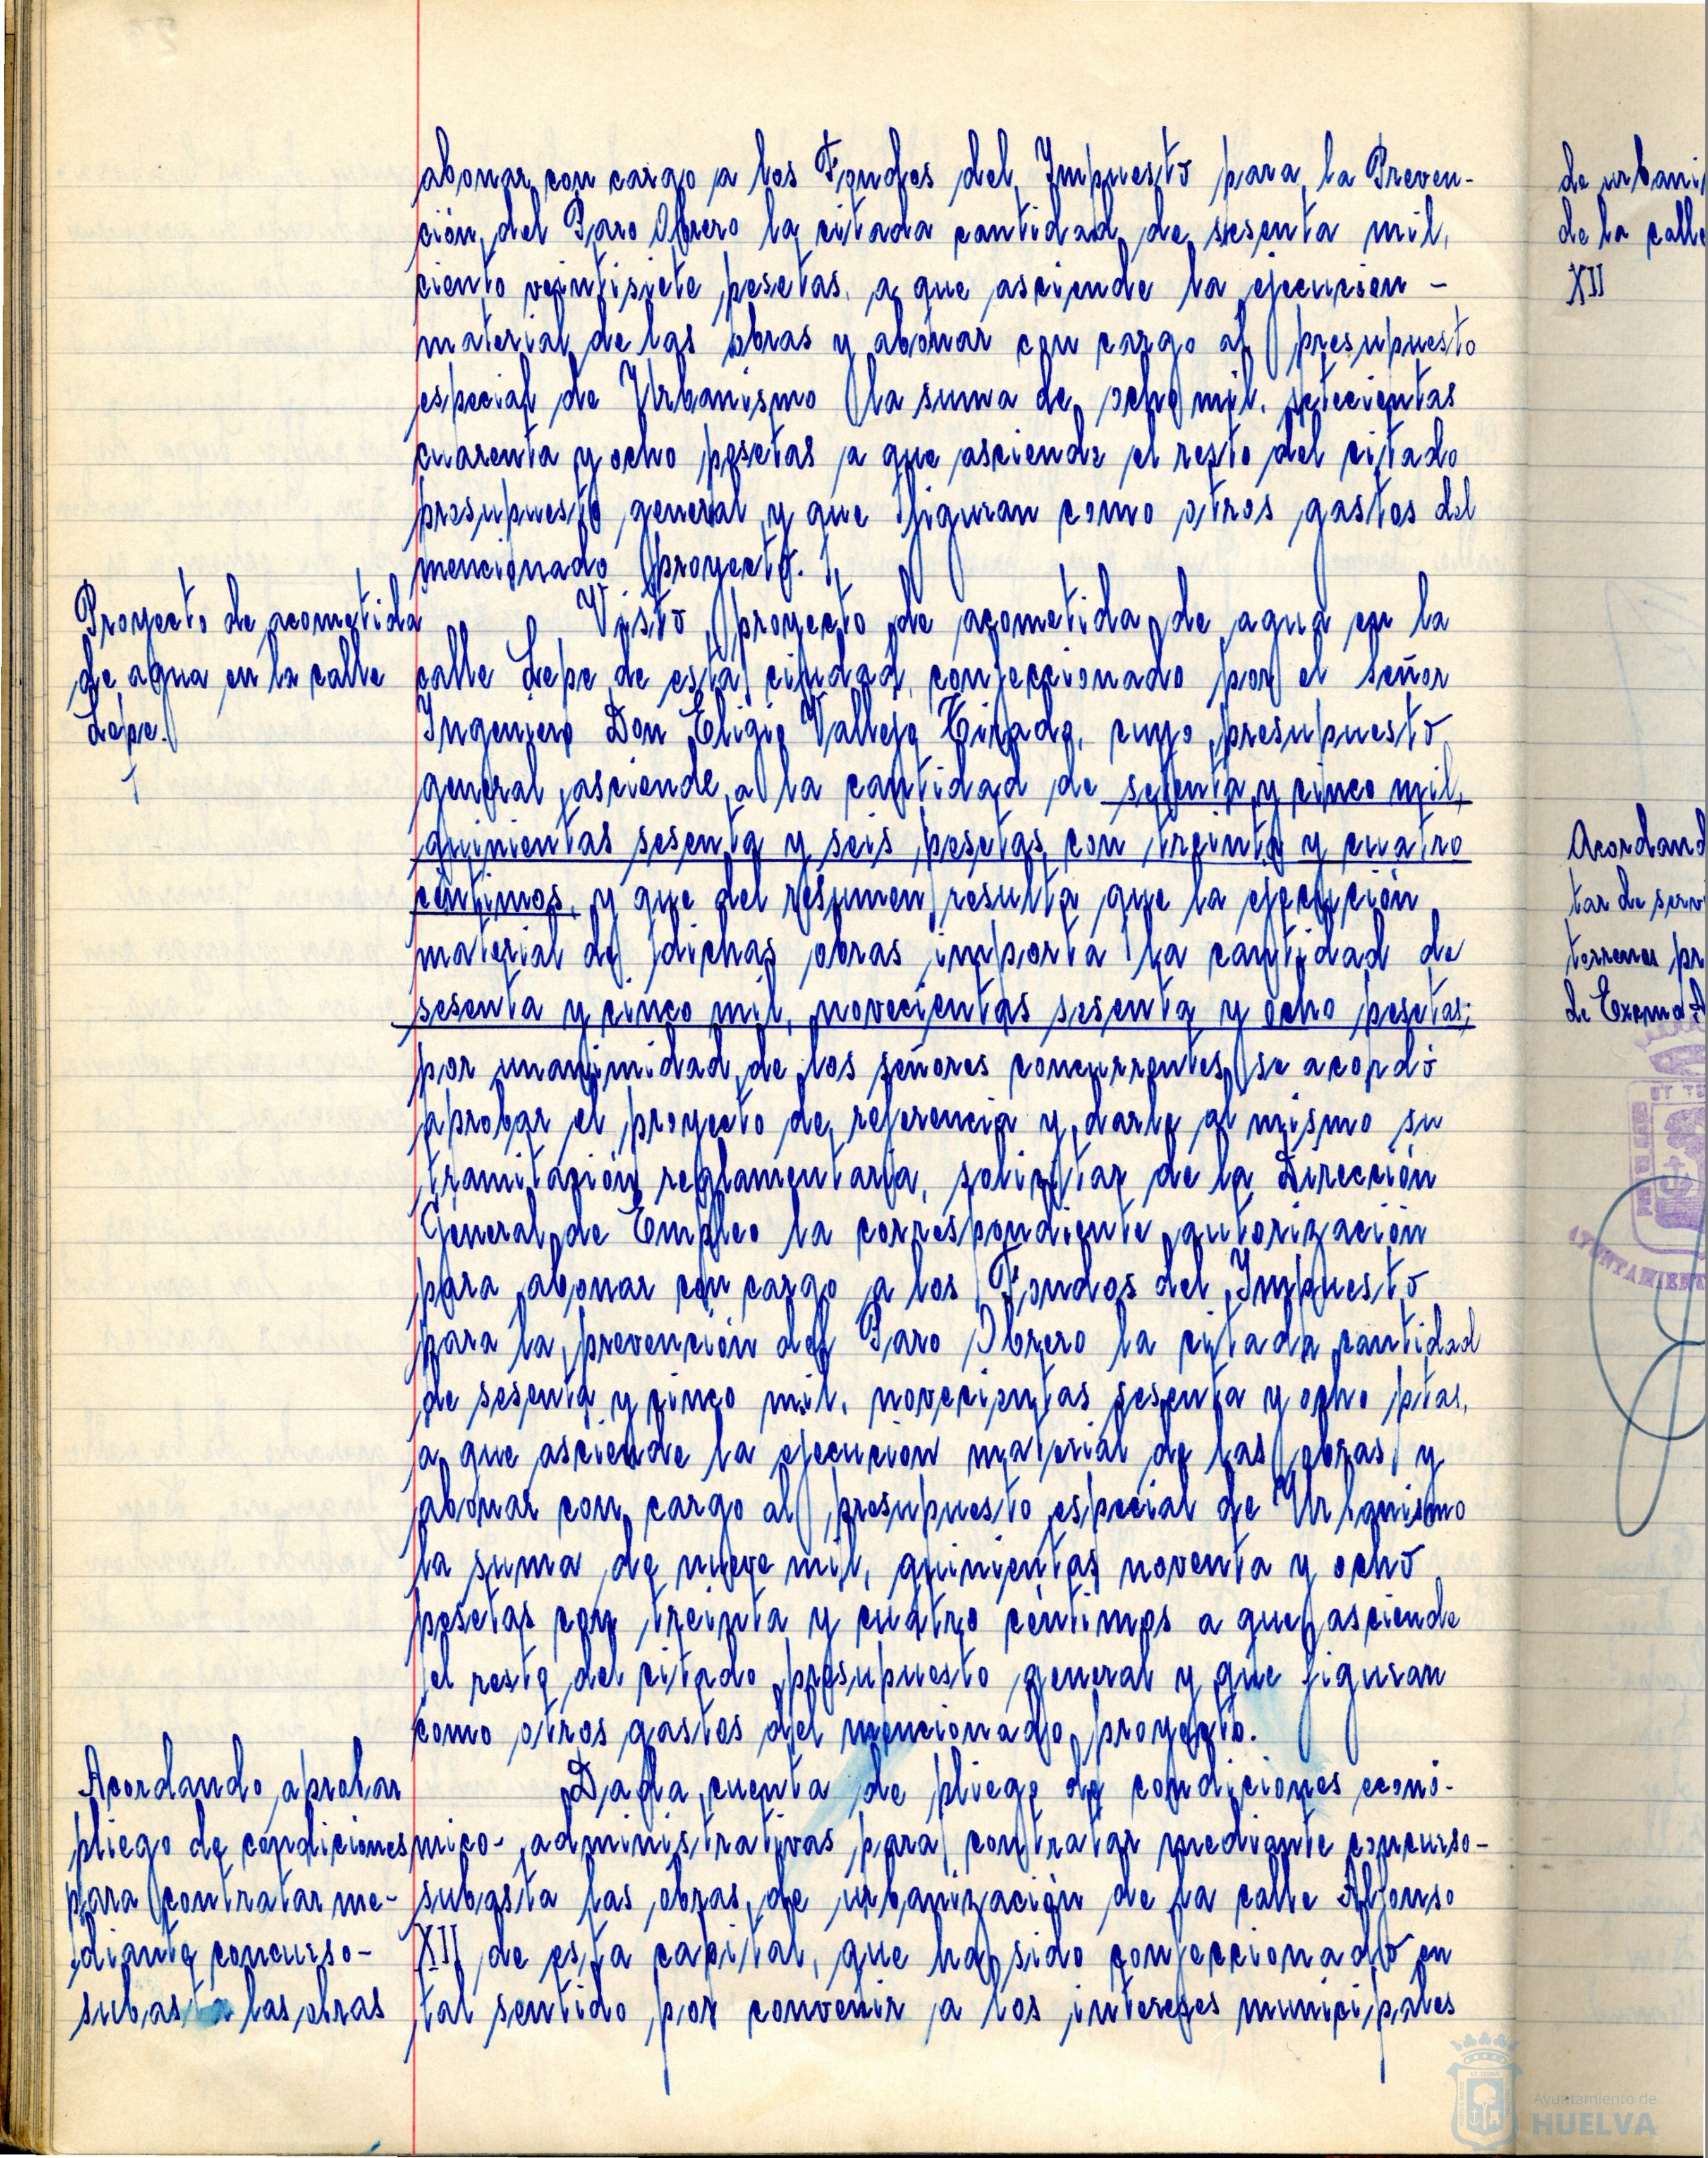 abonar con cargo a los Fondos del Impuesto para la Preven-
ción del Paro Obrero la citada cantidad de sesenta mil,
ciento veintisiete pesetas, a que asciende la ejecucion -
material de las obras y abonar con cargo al presupuesto
especial de Urbanismo la suma de ocho mil, setecientas
cuarenta y ocho pesetas a que asciende el resto del citado
presupuesto general y que figuran como otros gastos del
mencionado proyecto.
Proyecto de acometida
de agua en la calle
Lepe.
Visto proyecto de acometida de agua en la
calle Lepe de esta ciudad, confeccionado por el señor
Ingeniero Don Eligio Vallejo Tirado, cuyo presupuesto
general asciende a la cantidad de setenta y cinco mil,
quinientas sesenta y seis pesetas con treinta y cuatro
céntimos, y que del resumen resulta que la ejecución
material de dichas obras importa la cantidad de
sesenta y cinco mil, novecientas sesenta y ocho pesetas;
por unanimidad de los señores concurrentes se acordó
aprobar el proyecto de referencia y darle al mismo su
tramitación reglamentaria, solicitar de la Dirección
General de Empleo la correspondiente autorización
para abonar con cargo a los Fondos del Impuesto
para la prevención del Paro Obrero la citada cantidad
de sesenta y cinco mil, novecientas sesenta y ocho ptas,
a que asciende la ejecución material de las obras y
abonar con cargo al presupuesto especial de Urbanismo
la suma de nueve mil, quinientas noventa y ocho
pesetas con treinta y cuatro céntimos a que asciende
el resto del citado presupuesto general y que figuran
como otros gastos del mencionado proyecto.
Acordando aprobar
pliego de condiciones
para contratar me-
diante concurso-
subasta las obras
Dada cuenta de pliego de condiciones econó-
mico- administrativas para contratar mediante concurso-
subasta las obras de urbanización de la calle Alfonso
XII de esta capital, que ha sido confeccionado en
tal sentido por convenir a los intereses municipales
de urbani
de la calle
XII
Acordand
tar de serv
terrenos pr
de Excma
ET TE
AYUNTAMIEN
Ayuntamiento de
HUELVA